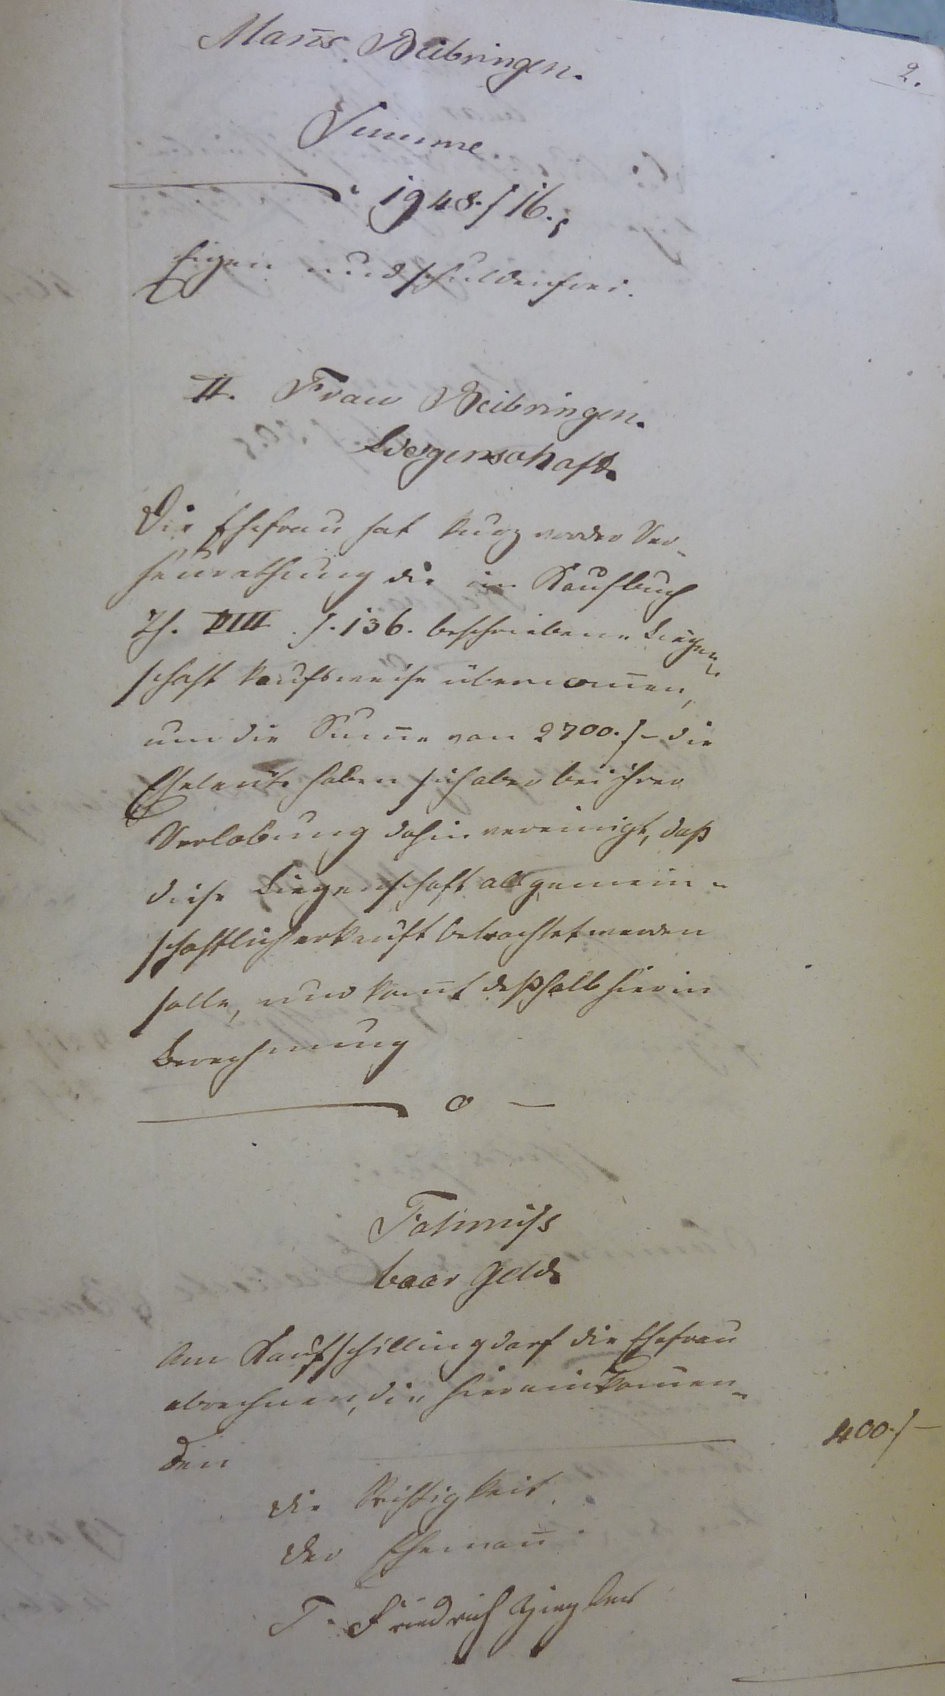 2.
Mañs Beibringen.
Summe
1948. f 16.
Eigen und schuldenfrei.
II. Frau Beibringen.
Liegenschaft.
Die Ehefrau hat kurz vor der Ver-
heurathung die im Kaufbuch
Th. VIII f. 136. beschriebene Liegen-
schaft kaufsweise übernom̄en,
um die Sum̄e von 2700. f – die
Eheleute haben sich aber bei ihrer
Verlobung dahin vereinigt, daß
diese Liegenschaft als gemein-
schaftlich erkauft betrachtet werden
solle, und kom̄t deßhalb hier in
Berechnung
0 –
Fahrniß
baar Geld.
Am Kaufschilling darf die Ehefrau
abrechnen, die hierein kom̄en-
den 400. f –
die Richtigkeit
der Ehemañ
T. Friedrich Ziegler